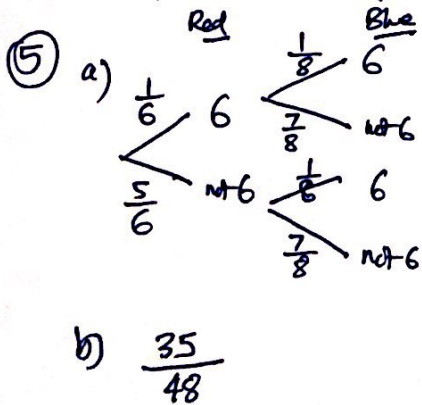 Red Blue
5 a) 1/6 6 1/8 6
7/8 not 6
5/6 not 6 1/8 6
7/8 not 6
b) 35/48